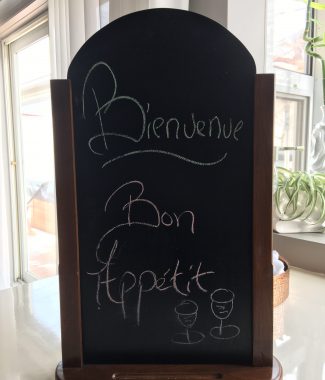 Bienvenue
Bon
Appétit